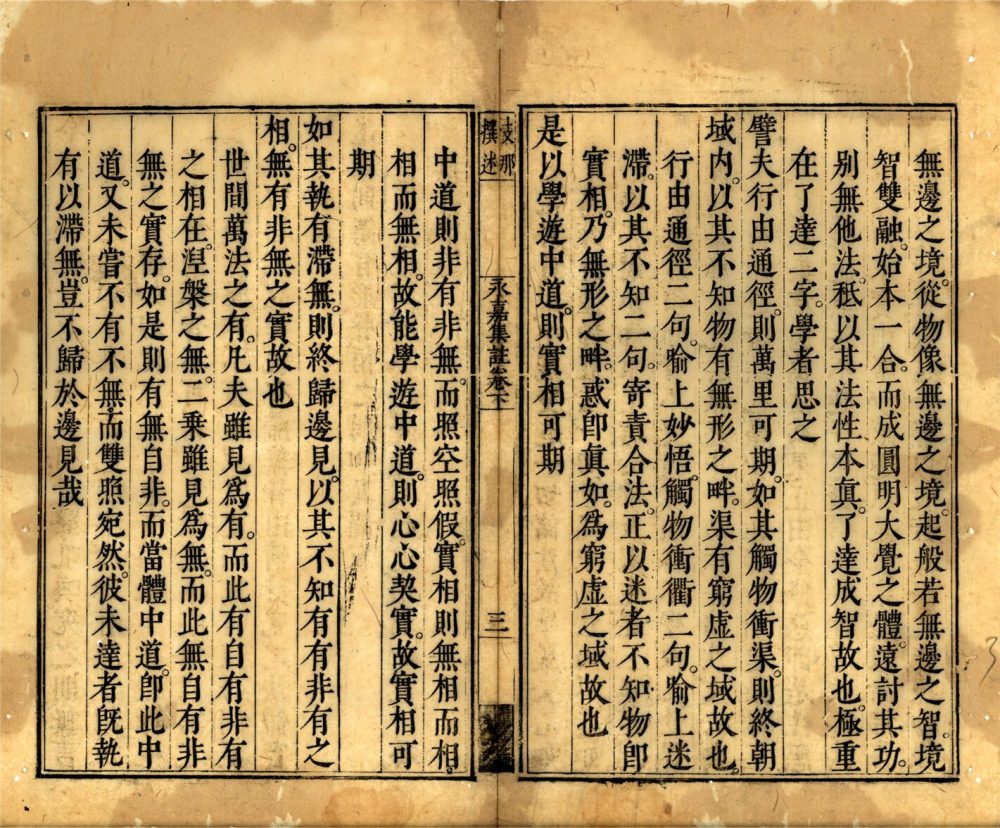 無邊之境。從物像無邊之境。起般若無邊之智。境
智雙融。始本一合。而成圓明大覺之體。遠討其功。
別無他法。秪以其法性本眞。了達成智故也。極重
在了達二字。學者思之
譬夫行由通徑。則萬里可期。如其觸物衝渠。則終朝
域內。以其不知物有無形之畔。渠有窮虛之域故也
行由通徑二句。喻上妙悟。觸物衝衢二句。喻上迷
滯。以其不知二句。寄責合法。正以迷者不知物卽
實相。乃無形之畔。惑卽眞如。爲窮虛之域故也
是以學遊中道。則實相可期
支那
撰述
永嘉集註卷下
三
中道則非有非無。而照空照假。實相則無相而相。
相而無相。故能學遊中道。則心心契實。故實相可
期
如其執有滯無。則終歸邊見。以其不知有有非有之
相。無有非無之實故也
世間萬法之有。凡夫雖見爲有。而此有自有非有
之相在。湼槃之無。二乘雖見爲無。而此無自有非
無之實存。如是則有無自非。而當體中道。卽此中
道。又未嘗不有不無。而雙照宛然。彼未達者旣執
有以滯無。豈不歸於邊見哉